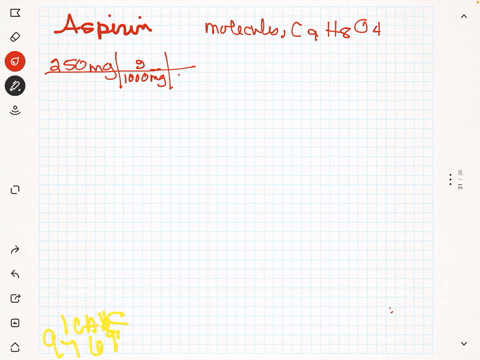 Aspirin molecules, C9H8O4
250mg | g
1000mg
31 / 36